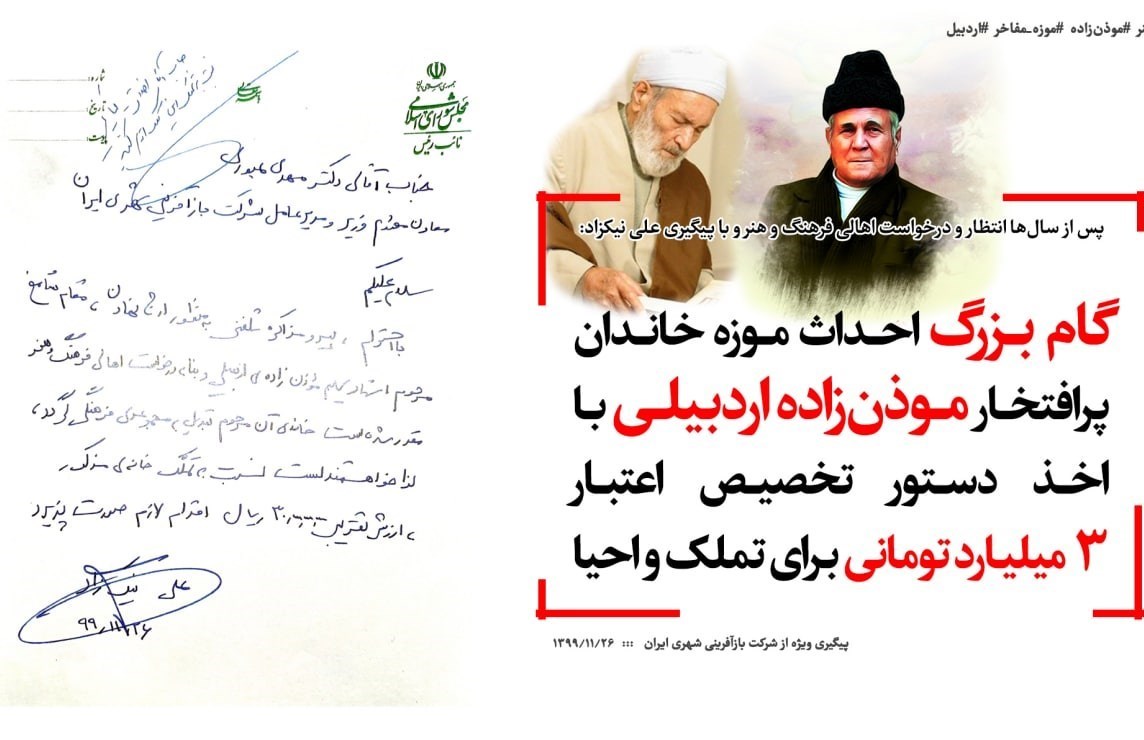 نر #موذن‌زاده #موزه_مفاخر #اردبیل
پس از سال‌ها انتظار و درخواست اهالی فرهنگ و هنر و با پیگیری علی نیکزاد:
گام بزرگ احداث موزه خاندان
پرافتخار موذن‌زاده اردبیلی با
اخذ دستور تخصیص اعتبار
۳ میلیارد تومانی برای تملک و احیا
پیگیری ویژه از شرکت بازآفرینی شهری ایران ::: ۱۳۹۹/۱۱/۲۶
جمهوری اسلامی ایران
مجلس شورای اسلامی
نائب رئیس
شماره:
تاریخ:
پیوست:
جناب آقای دکتر مهدی عبوری
معاون محترم وزیر و مدیرعامل شرکت بازآفرینی شهری ایران
سلام علیکم
با احترام، پیرو مذاکره تلفنی به منظور ارج نهادن به مقام شامخ
مرحوم استاد سلیم مؤذن زاده‌ی اردبیلی و بنا به درخواست اهالی فرهنگ و هنر
مقرر شده است خانه‌ی آن مرحوم تبدیل به مجموعه‌ی فرهنگی گردد،
لذا خواهشمند است نسبت به تملک خانه‌ی مذکور
به ارزش تقریبی ریال اقدام لازم صورت پذیرد
علی نیکزاد
۹۹/۱۱/۲۶